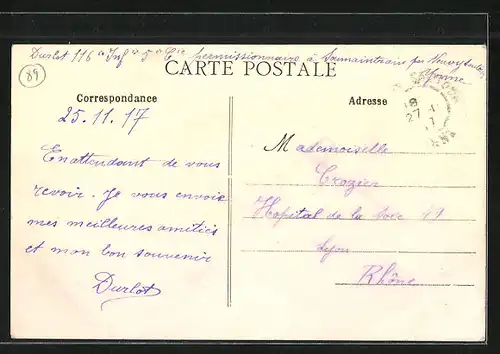 Durlot 116e Inf 5e Cie permissionnaire à Soumaintrain par Neuvy Sautour
Yonne
89
CARTE POSTALE
Correspondance
Adresse
25.11.17
Enattendant de vous
revoir. Je vous envoie
mes meilleures amitiés
et mon bon souvenir
Durlot
Mademoiselle
Crozier
Hopital de la 49
Lyon
Rhône